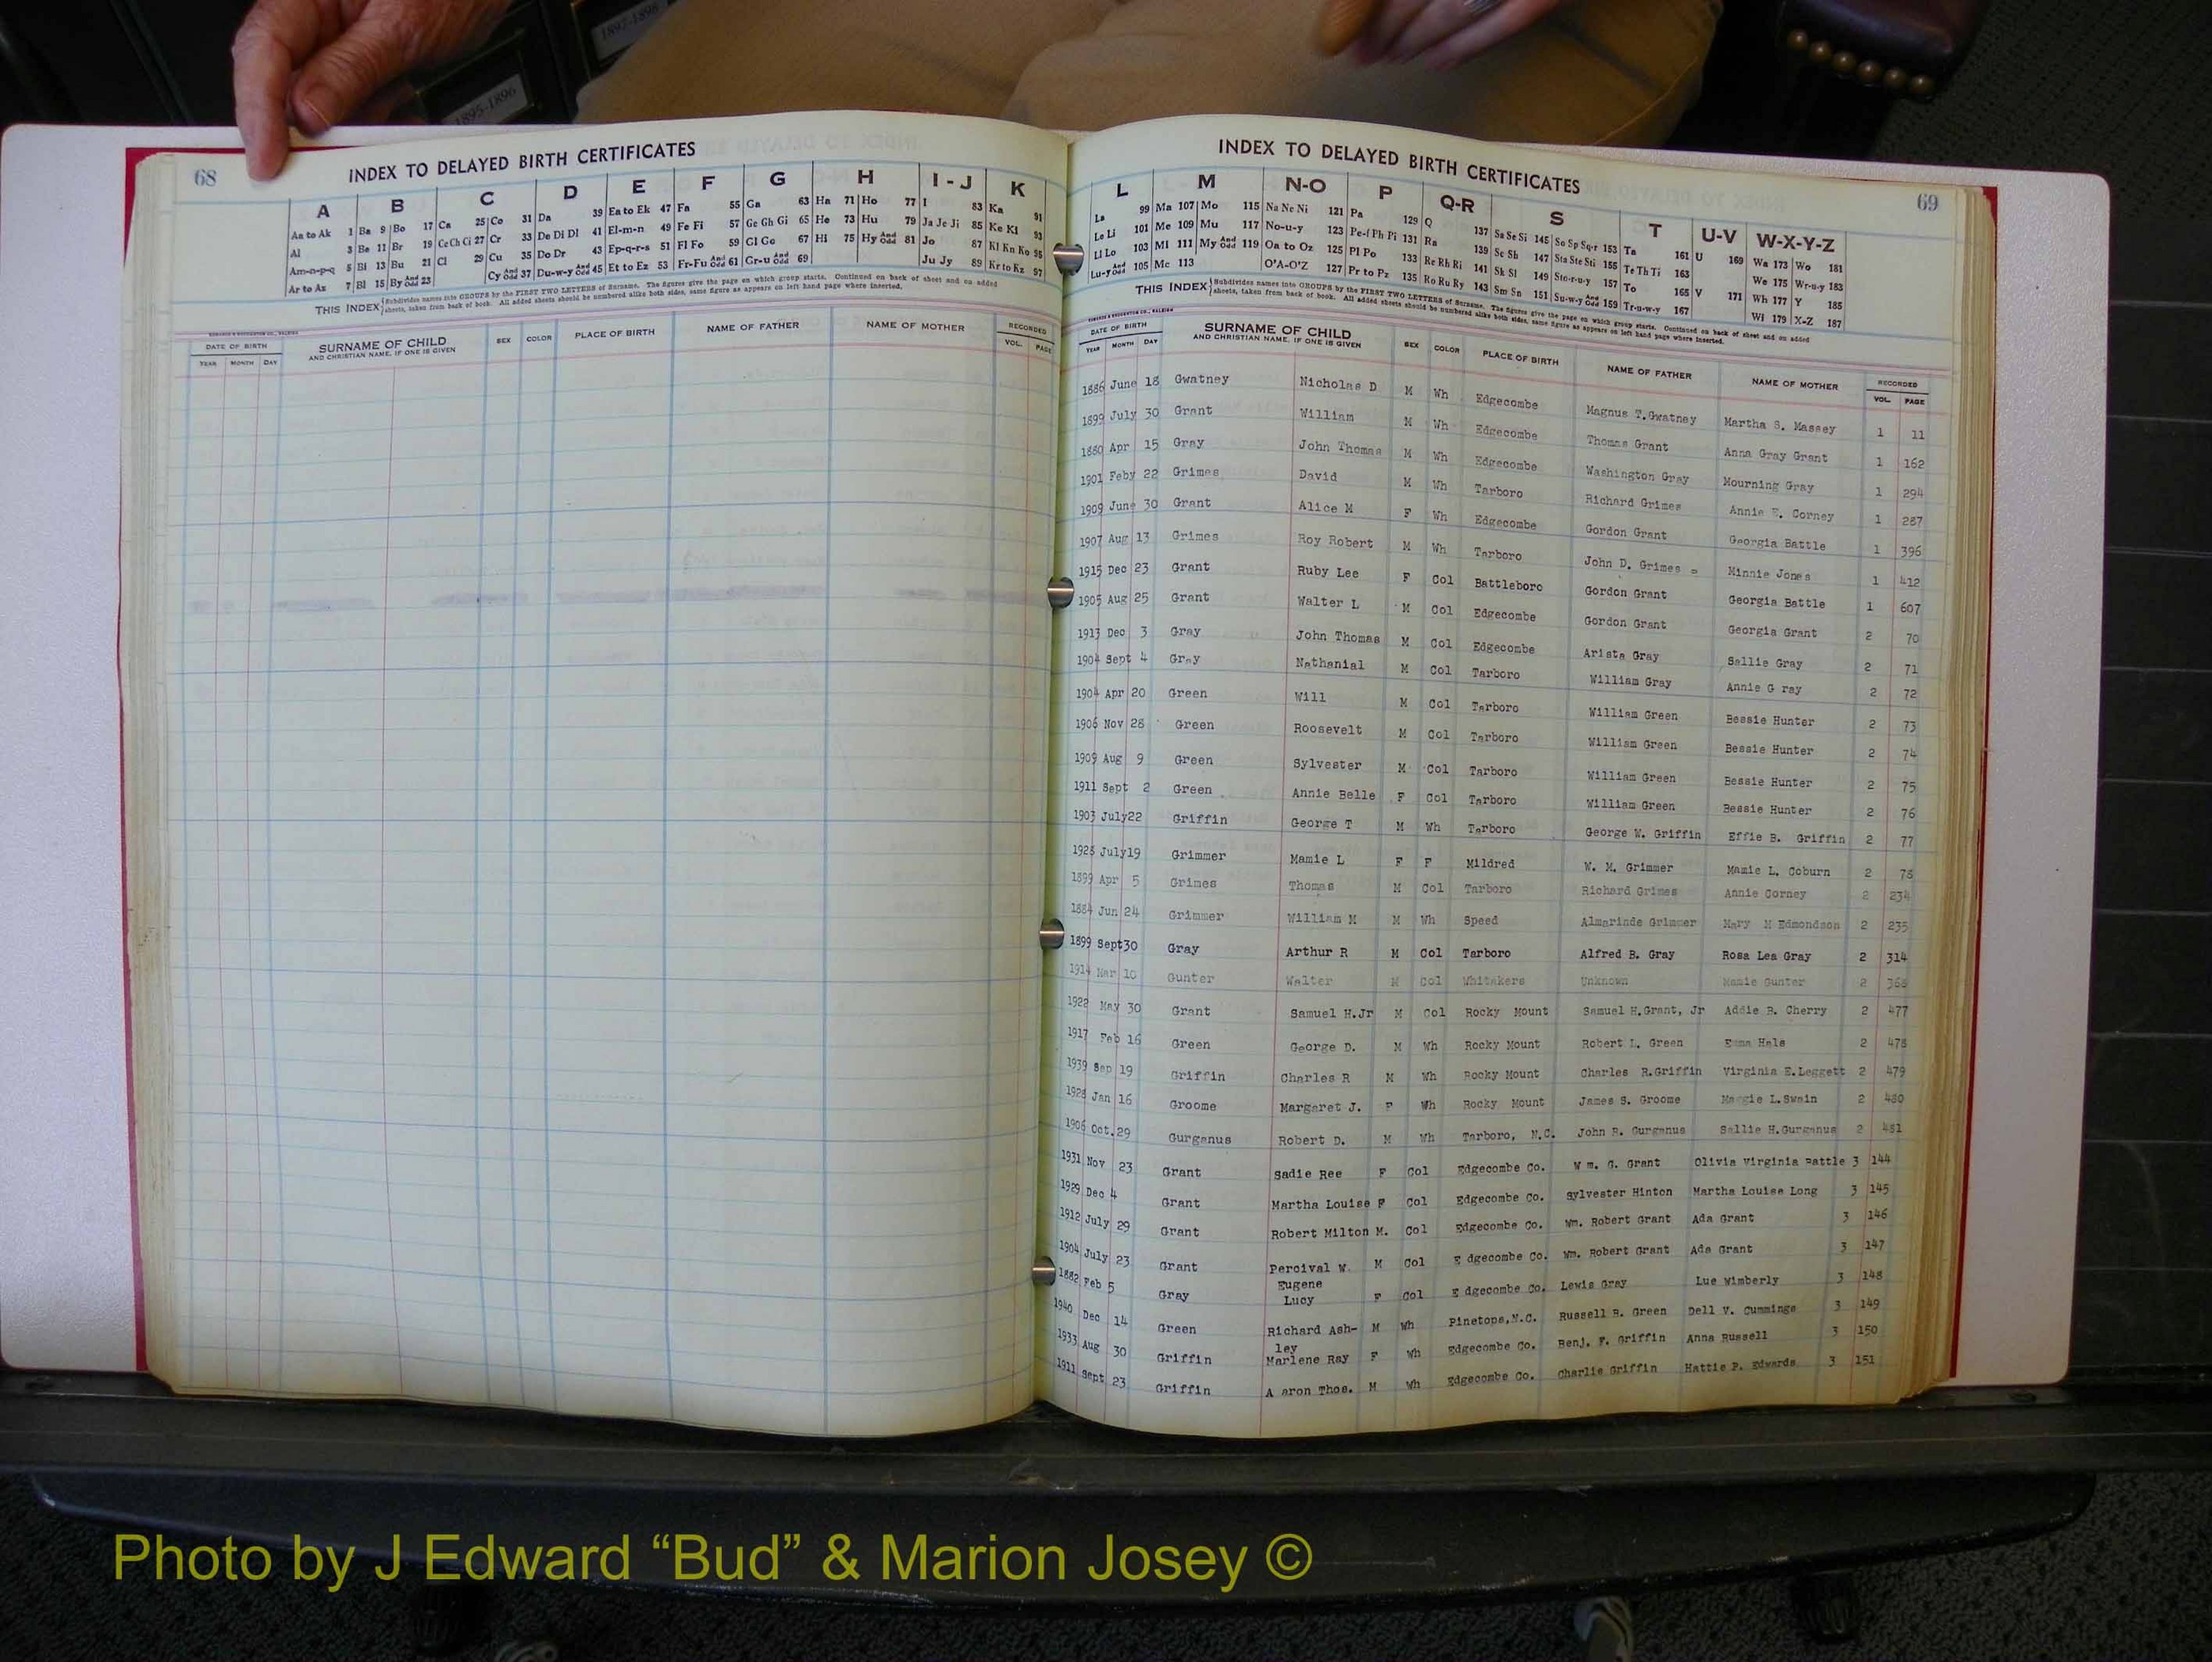 1897-1898
1895-1896
68
INDEX TO DELAYED BIRTH CERTIFICATES
A B C D E F G H I - J K
Aa to Ak 1 Ba 9 Bo 17 Ca 25 Co 31 Da 39 Ea to Ek 47 Fa 55 Ga 63 Ha 71 Ho 77 I 83 Ka 91
Al 3 Be 11 Br 19 Ce Ch Ci 27 Cr 33 De Di Dl 41 El-m-n 49 Fe Fi 57 Ge Gh Gi 65 He 73 Hu 79 Ja Je Ji 85 Ke Kl 93
Am-n-p-q 5 Bi 13 Bu 21 Cl 29 Cu 35 Do Dr 43 Ep-q-r-s 51 Fl Fo 59 Gl Go 67 Hi 75 Hy And Odd 81 Jo 87 Kl Kn Ko 95
Ar to Az 7 Bl 15 By And Odd 23 Cy And Odd 37 Du-w-y And Odd 45 Et to Ez 53 Fr-Fu And Odd 61 Gr-u And Odd 69 Ju Jy 89 Kr to Kz 97
THIS INDEX Subdivides names into GROUPS by the FIRST TWO LETTERS of Surname. The figures give the page on which group starts. Continued on back of sheet and on added
sheets, taken from back of book. All added sheets should be numbered alike both sides, same figure as appears on left hand page where inserted.
EDWARDS & BROUGHTON CO., RALEIGH
DATE OF BIRTH SURNAME OF CHILD SEX COLOR PLACE OF BIRTH NAME OF FATHER NAME OF MOTHER RECORDED
YEAR MONTH DAY AND CHRISTIAN NAME, IF ONE IS GIVEN VOL. PAGE
INDEX TO DELAYED BIRTH CERTIFICATES
69
L M N-O P Q-R S T U-V W-X-Y-Z
La 99 Ma 107 Mo 115 Na Ne Ni 121 Pa 129 Q 137 Sa Se Si 145 So Sp Sq-r 153 Ta 161 U 169 Wa 173 Wo 181
Le Li 101 Me 109 Mu 117 No-u-y 123 Pe-f Ph Pi 131 Ra 139 Sc Sh 147 Sta Ste Sti 155 Te Th Ti 163 We 175 Wr-u-y 183
Ll Lo 103 Mi 111 My And Odd 119 Oa to Oz 125 Pl Po 133 Re Rh Ri 141 Sk Sl 149 Sto-r-u-y 157 To 165 V 171 Wh 177 Y 185
Lu-y And Odd 105 Mc 113 O'A-O'Z 127 Pr to Pz 135 Ro Ru Ry 143 Sm Sn 151 Su-w-y And Odd 159 Tr-u-w-y 167 Wi 179 X-Z 187
THIS INDEX Subdivides names into GROUPS by the FIRST TWO LETTERS of Surname. The figures give the page on which group starts. Continued on back of sheet and on added
sheets, taken from back of book. All added sheets should be numbered alike both sides, same figure as appears on left hand page where inserted.
EDWARDS & BROUGHTON CO., RALEIGH
DATE OF BIRTH SURNAME OF CHILD SEX COLOR PLACE OF BIRTH NAME OF FATHER NAME OF MOTHER RECORDED
YEAR MONTH DAY AND CHRISTIAN NAME, IF ONE IS GIVEN VOL. PAGE
1886 June 18 Gwatney Nicholas D M Wh Edgecombe Magnus T.Gwatney Martha S. Massey 1 11
1899 July 30 Grant William M Wh Edgecombe Thomas Grant Anna Gray Grant 1 162
1880 Apr 15 Gray John Thomas M Wh Edgecombe Washington Gray Mourning Gray 1 294
1901 Feby 22 Grimes David M Wh Tarboro Richard Grimes Annie E. Corney 1 287
1909 June 30 Grant Alice M F Wh Edgecombe Gordon Grant Georgia Battle 1 396
1907 Aug 13 Grimes Roy Robert M Wh Tarboro John D. Grimes Minnie Jones 1 412
1915 Dec 23 Grant Ruby Lee F Col Battleboro Gordon Grant Georgia Battle 1 607
1905 Aug 25 Grant Walter L M Col Edgecombe Gordon Grant Georgia Grant 2 70
1913 Dec 3 Gray John Thomas M Col Edgecombe Arista Gray Sallie Gray 2 71
1904 Sept 4 Gray Nathanial M Col Tarboro William Gray Annie G ray 2 72
1904 Apr 20 Green Will M Col Tarboro William Green Bessie Hunter 2 73
1906 Nov 28 Green Roosevelt M Col Tarboro William Green Bessie Hunter 2 74
1909 Aug 9 Green Sylvester M Col Tarboro William Green Bessie Hunter 2 75
1911 Sept 2 Green Annie Belle F Col Tarboro William Green Bessie Hunter 2 76
1903 July22 Griffin George T M Wh Tarboro George W. Griffin Effie B. Griffin 2 77
1928 July19 Grimmer Mamie L F F Mildred W. M. Grimmer Mamie L. Coburn 2 78
1899 Apr 5 Grimes Thomas M Col Tarboro Richard Grimes Annie Corney 2 234
1884 Jun 24 Grimmer William M M Wh Speed Almarinde Grimmer Mary M Edmondson 2 235
1899 Sept30 Gray Arthur R M Col Tarboro Alfred B. Gray Rosa Lea Gray 2 314
1914 Mar 10 Gunter Walter M Col Whitakers Unknown Mamie Gunter 2 368
1922 May 30 Grant Samuel H.Jr M Col Rocky Mount Samuel H.Grant, Jr Addie B. Cherry 2 477
1917 Feb 16 Green George D. M Wh Rocky Mount Robert L. Green Emma Hals 2 478
1939 Sep 19 Griffin Charles R M Wh Rocky Mount Charles R.Griffin Virginia E.Leggett 2 479
1928 Jan 16 Groome Margaret J. F Wh Rocky Mount James S. Groome Maggie L.Swain 2 480
1906 Oct.29 Gurganus Robert D. M Wh Tarboro, N.C. John R. Gurganus Sallie H.Gurganus 2 481
1931 Nov 23 Grant Sadie Ree F Col Edgecombe Co. W m. G. Grant Olivia Virginia Battle 3 144
1929 Dec 4 Grant Martha Louise F Col Edgecombe Co. Sylvester Hinton Martha Louise Long 3 145
1912 July 29 Grant Robert Milton M. Col Edgecombe Co. Wm. Robert Grant Ada Grant 3 146
1904 July 23 Grant Percival W. M Col E dgecombe Co. Wm. Robert Grant Ada Grant 3 147
Eugene
1882 Feb 5 Gray Lucy F Col E dgecombe Co. Lewis Gray Lue Wimberly 3 148
1940 Dec 14 Green Richard Ash- M Wh Pinetops,N.C. Russell B. Green Dell V. Cummings 3 149
ley
1933 Aug 30 Griffin Marlene Ray F Wh Edgecombe Co. Benj. F. Griffin Anna Russell 3 150
1911 Sept 23 Griffin A aron Thos. M Wh Edgecombe Co. Charlie Griffin Hattie P. Edwards 3 151
Photo by J Edward “Bud” & Marion Josey ©